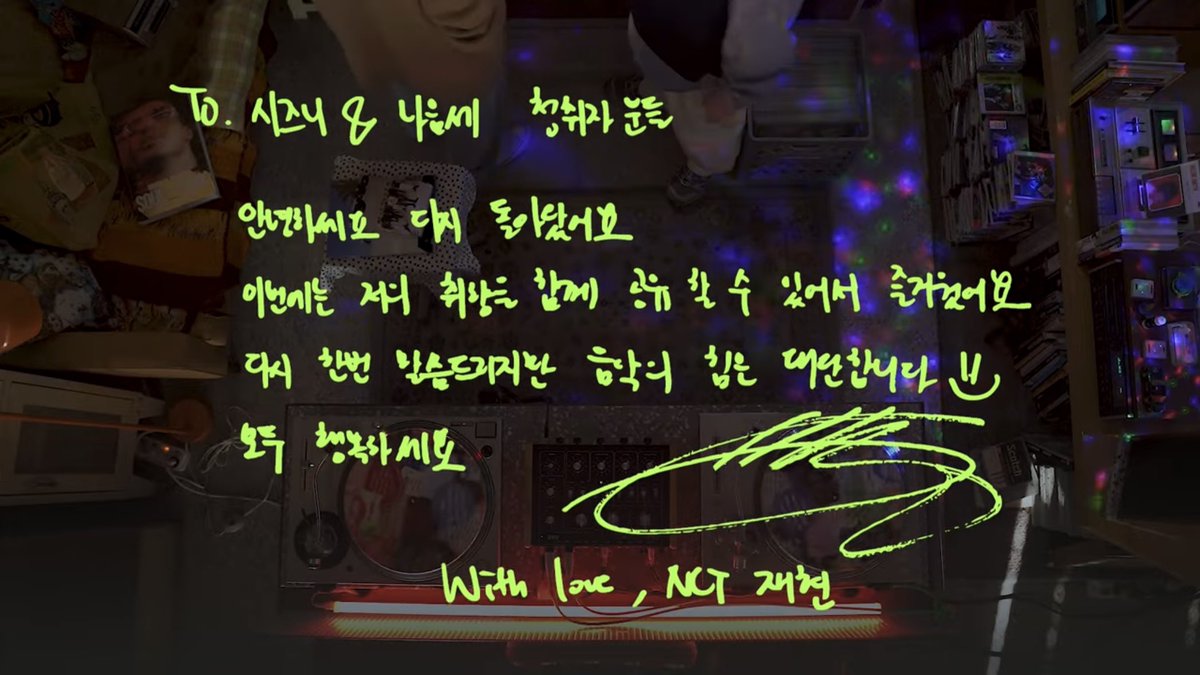 To. 시즈니 & 나음세 청취자 분들
안녕하세요 다시 돌아왔어요
이번에는 저의 취향을 함께 공유 할 수 있어서 즐거웠어요
다시 한번 말씀드리지만 음악의 힘은 대단합니다
모두 행복하세요
With love, NCT 재현